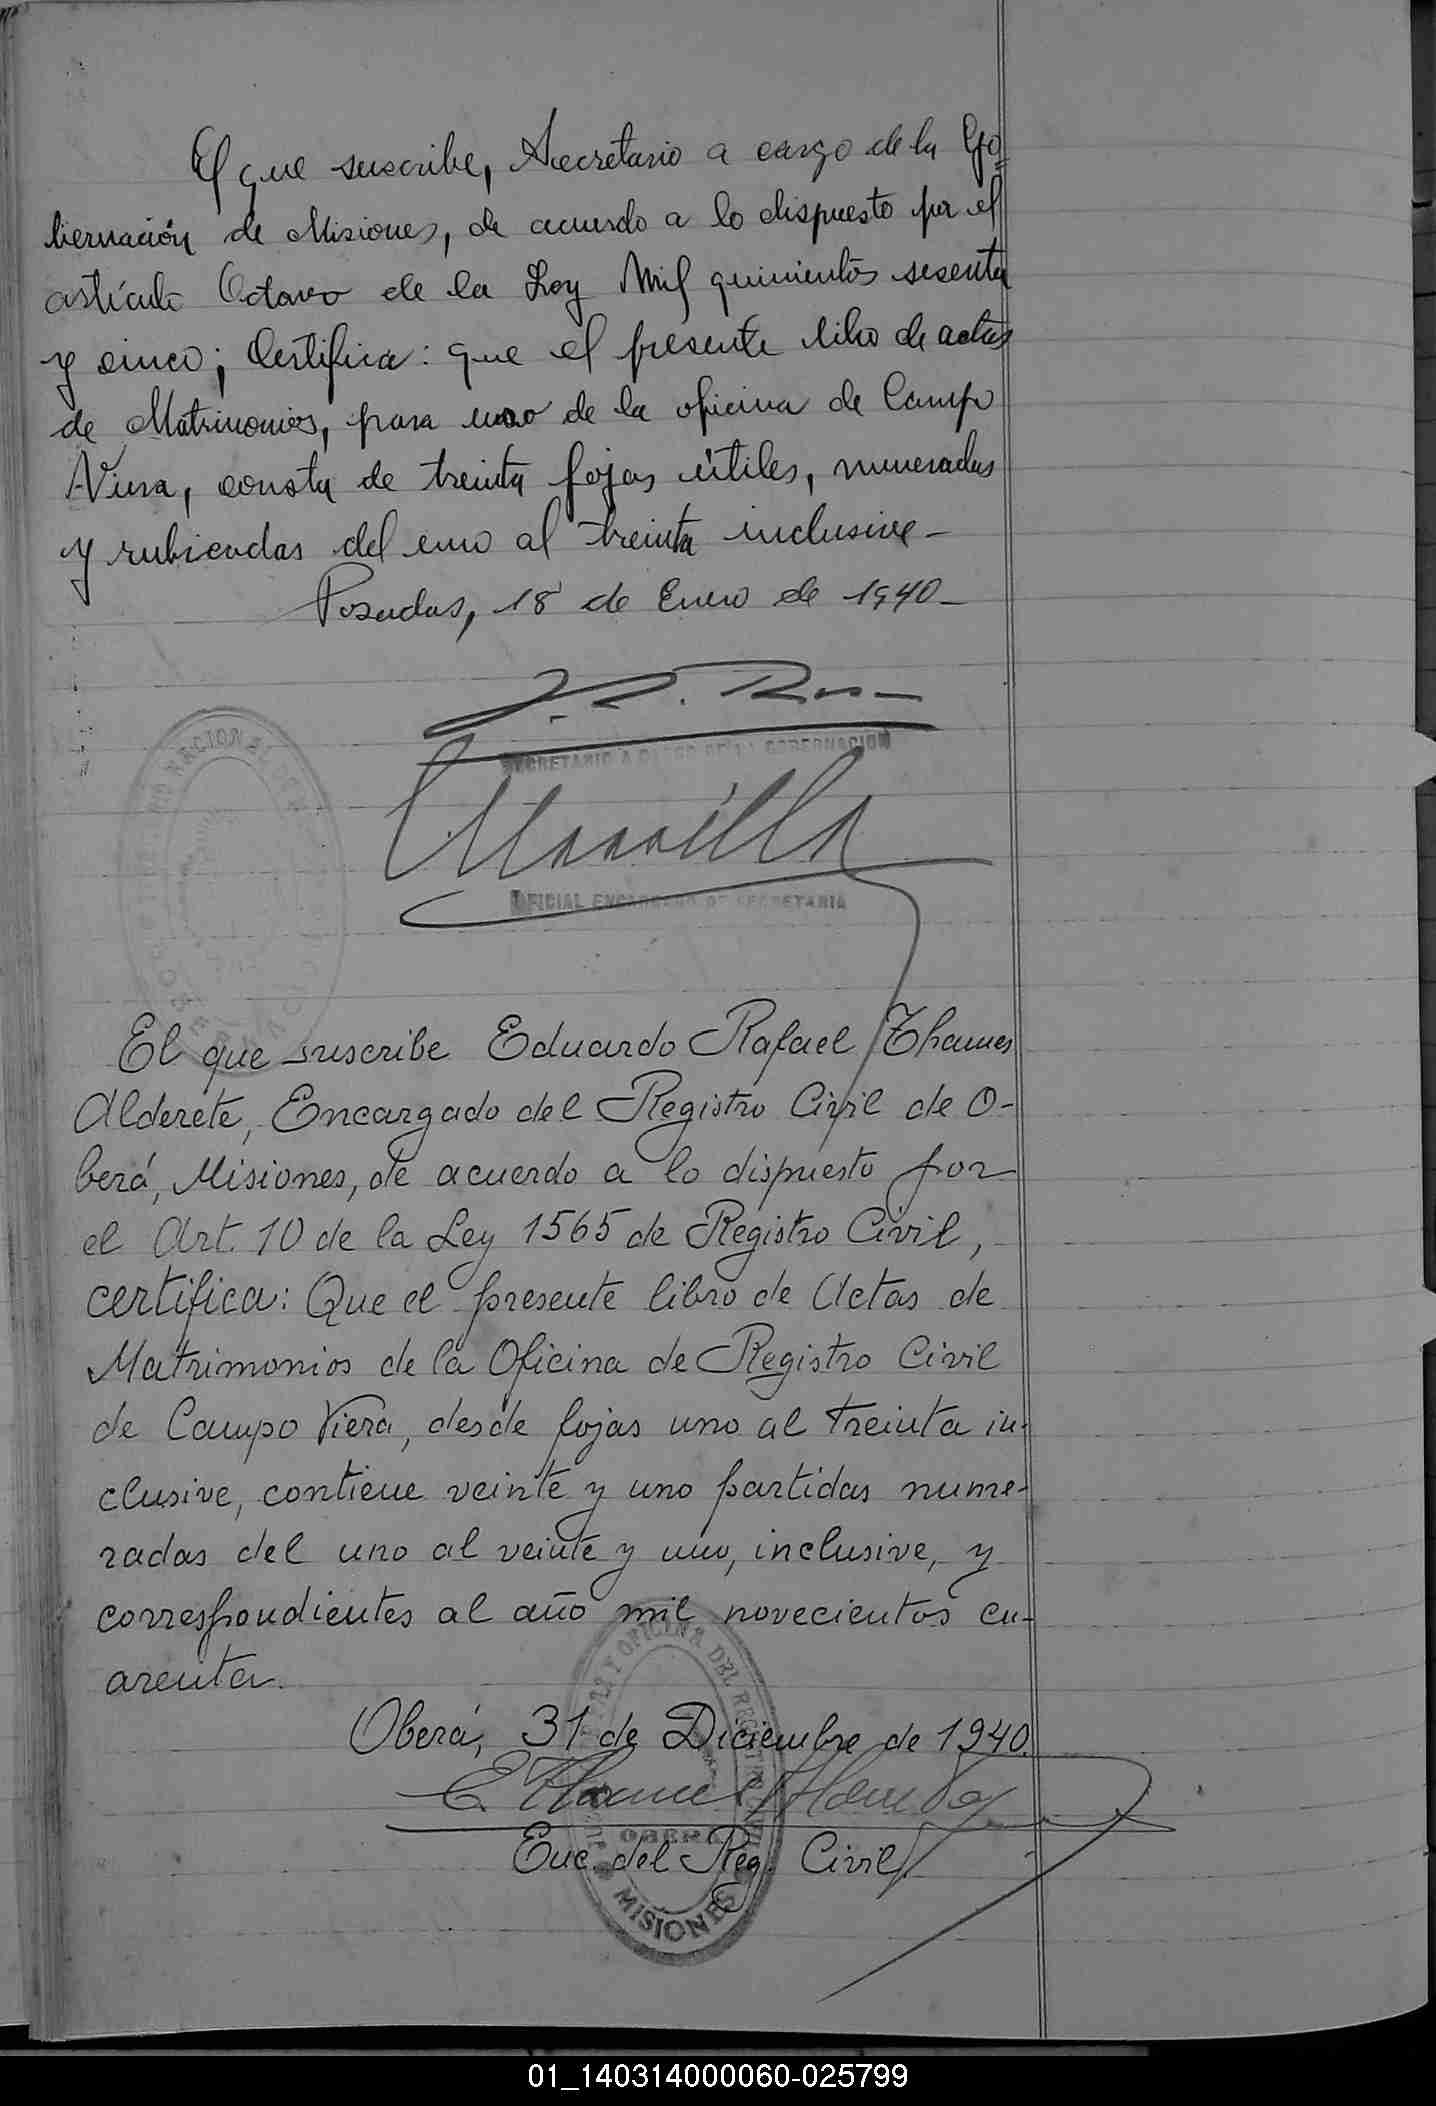 El que suscribe, Secretario a cargo de la Go=
bernación de Misiones, de acuerdo a lo dispuesto por el
artículo Octavo de la Ley Mil quinientos sesenta
y cinco; Certifica: que el presente libro de actas
de Matrimonios, para uso de la oficina de Campo
Viera, consta de treinta fojas útiles, numeradas
y rubicadas del uno al treinta inclusive-
Posadas, 18 de Enero de 1940-
SECRETARIO A CARGO DE LA GOBERNACION
OFICIAL ENCARGADO DE SECRETARIA
El que suscribe Eduardo Rafael Thames
Alderete, Encargado del Registro Civil de O-
berá, Misiones, de acuerdo a lo dispuesto por
el Art. 10 de la Ley 1565 de Registro Civil,
certifica: Que el presente libro de Actas de
Matrimonios de la Oficina de Registro Civil
de Campo Viera, desde fojas uno al treinta in-
clusive, contiene veinte y uno partidas nume-
radas del uno al veinte y uno, inclusive, y
correspondientes al año mil novecientos cu-
arenta.
Oberá, 31 de Diciembre de 1940.
E Thames Alderete
Enc. del Reg. Civil
OFICINA DEL REGISTRO CIVIL
OBERA
MISIONES
01_140314000060-025799